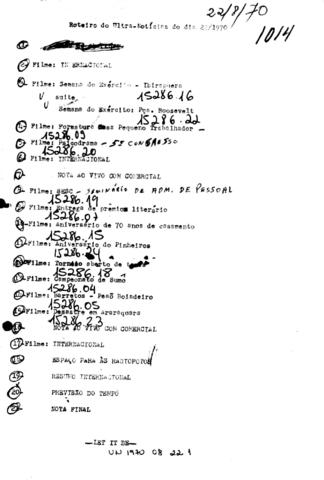 22/8/70
Roteiro do Ultra-Notícias do dia 22/1970
1014
Filme: INTERNACIONAL
Filme: Semana do Exército - Ibirapuera
V suite 15286.16
V Semana do Exército: Pça. Roosevelt
15286.22
Filme: Formatura Pequeno Trabalhador -
15286.09
Filme: Psicodrama - 5º CONGRESSO
15286.20
Filme: INTERNACIONAL
NOTA AO VIVO COM COMERCIAL
Filme: SESC - SEMINÁRIO DE ADM. DE PESSOAL
15286.19
Filme: Entrega de prêmios literário
15286.07
Filme: Aniversário de 70 anos de casamento
15286.15
Filme: Aniversário do Pinheiros
15286.24
Filme: Torneio aberto de
15286.18
Filme: Campeonato de Sumô
15286.04
Filme: Barretos - Peão Boiadeiro
15286.05
Filme: Desastre em Araraquara
15286.23
NOTA AO VIVO COM COMERCIAL
17 Filme: INTERNACIONAL
18 ESPAÇO PARA AS RADIOFOTOS
19 RESUMO INTERNACIONAL
20 PREVISÃO DO TEMPO
NOTA FINAL
—LET IT BE—
UN 1970 08 22 1